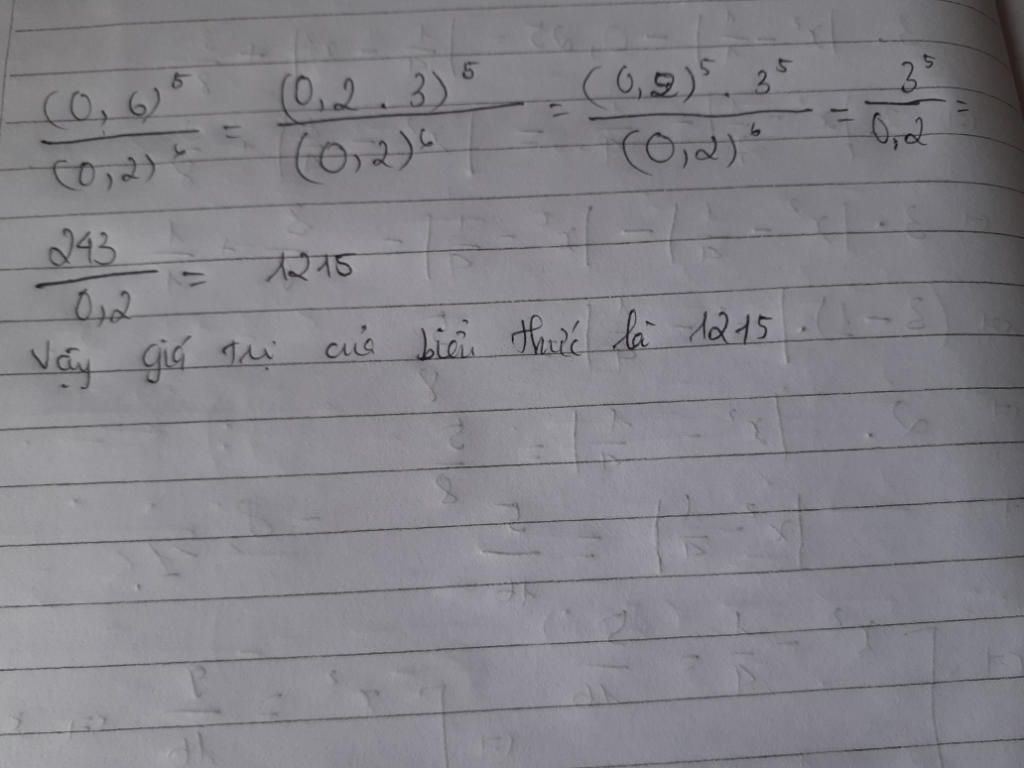 (0,6)^5 / (0,2)^6 = (0,2 . 3)^5 / (0,2)^6 = (0,2)^5 . 3^5 / (0,2)^6 = 3^5 / 0,2 =
243 / 0,2 = 1215
Vậy giá trị của biểu thức là 1215.